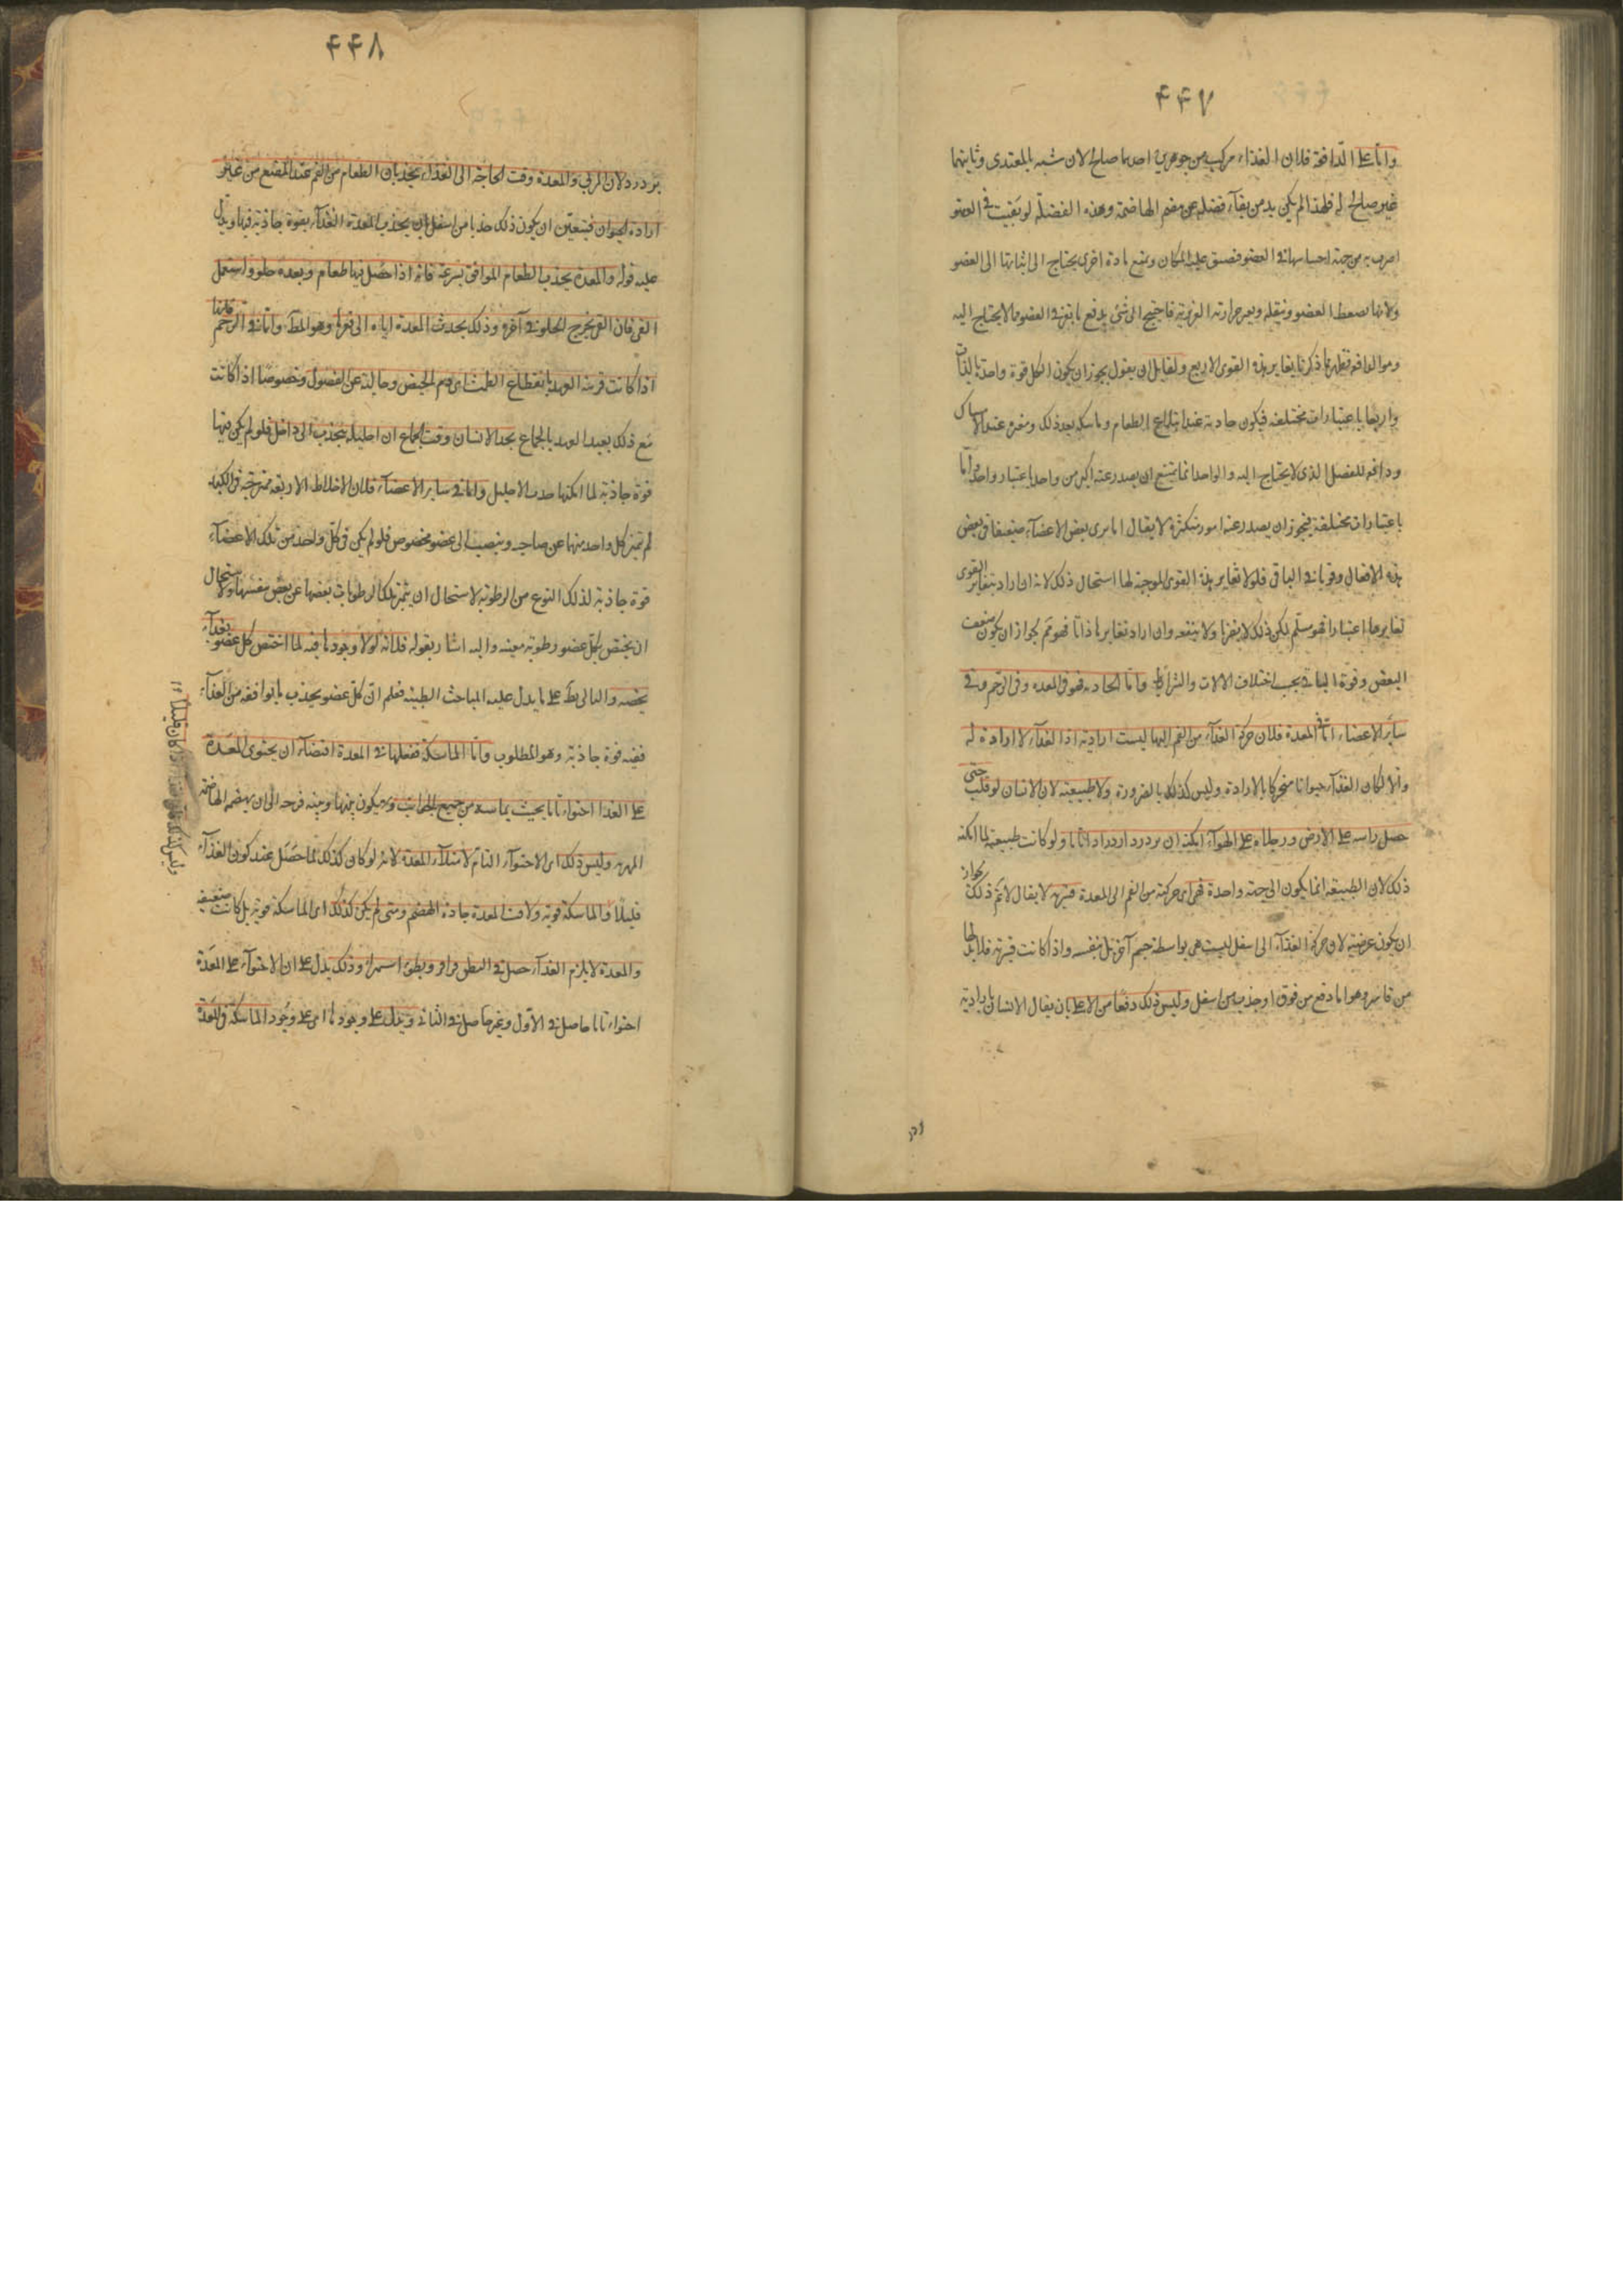 ۴۴۷
واما على الدافعة فلان الغذاء مركب من جوهرين احدهما صالح لان شبه بالمغتدى وثانيهما
غير صالح له فلهذا لم يكن بد من بقاء فضلة من هضم الهاضمة وهذه الفضلة لو بقيت فى العضو
اضرت به من جهة احتباسها فى العضو فضيق عليه المكان ويمنع مادة اخرى يحتاج الى اتيانها الى العضو
ولانها تضغط العضو وتثقله حرارته الغريزية فاحتيج الى شئ يدفع ما بقى فى العضو مما لا يحتاج اليه
وهو الدافعة فظهر مما ذكرنا تغاير هذه القوى الاربع ولقايل ان يقول يجوز ان يكون الكل قوة واحدة بالذات
واربعا باعتبارات مختلفة فيكون جاذبة عند ابتلاع الطعام وماسكة بعد ذلك ومغيرة عند الامساك
ودافعة للفضل الذى لا يحتاج اليه والواحد انما يمتنع ان يصدر عنه اكثر من واحد باعتبار واحد واما
باعتبارات مختلفة فيجوز ان يصدر عنه امور متكثرة لا يقال انا نرى بعض الاعضاء ضعيفا فى بعض
هذه الافعال وقويا فى الباقى فلولا تغاير هذه القوى الموجبة لها استحال ذلك لانه ان اراد بتغاير القوى
تغايرها اعتبارا فهو مسلم لكن ذلك لا يضرنا ولا ينفعه وان اراد تغايرها ذاتا فهو مم لجواز ان يكون ضعف
البعض وقوة الباقى بحسب اختلاف الالات والشرائط واما الجاذبة فهو فى المعدة وفى الرحم وفى
ساير الاعضاء اما فى المعدة فلان حركة الغذاء من الفم اليها ليست ارادية اذ الغذاء لا ارادة له
والا لكان الغذاء حيوانا متحركا بالارادة وليس كذلك بالضرورة ولا طبيعية لان الانسان لو قلب حتى
حصل راسه على الارض ورجلاه على الهواء امكنه ان يزدرد ازدرادا تاما ولو كانت طبيعية لما امكنه
ذلك لان الطبيعة انما يكون الى جهة واحدة فهى اى حركته من الفم الى المعدة قسرية لا يقال لا نم ذلك لجواز
ان يكون عرضية لان حركة الغذاء الى اسفل ليست هى بواسطة جسم آخر بل بنفسه واذا كانت قسرية فلا بد لها
من قاسر وهو اما دفع من فوق او جذب من اسفل وليس ذلك دفعا من الاعلى بان يقال الانسان بارادته
۴۴۸
يزدرد لان المرئ والمعدة وقت الحاجة الى الغذاء يجذبان الطعام من الفم عند المضغ من غير
ارادة الحيوان فيتعين ان يكون ذلك جذبا من اسفل بان يجذب المعدة الغذاء بقوة جاذبة فيها ويدل
عليه قوله والمعدة يجذب الطعام الموافق بسرعة فانه اذا حصل فيها طعام وبعده حلو واستعمل
القى فان القى يخرج الحلو فى آخره وذلك بجذب المعدة اياه الى قعرها وهو المط واما فى الرحم فلانها
اذا كانت قريبة العهد بانقطاع الطمث اى دم الحيض وخالية عن الفضول وخصوصا اذا كانت
مع ذلك بعيد العهد بالجماع يجد الانسان وقت الجماع ان احليله ينجذب الى داخل فلو لم يكن فيها
قوة جاذبة لما امكنها جذب الاحليل واما فى ساير الاعضاء فلان الاخلاط الاربعة ممتزجة فى الكبد
ثم تميز كل واحد منها عن صاحبه وينصب الى عضو مخصوص فلو لم يكن فى كل واحد من تلك الاعضاء
قوة جاذبة لذلك النوع من الرطوبة لاستحال ان يتميز تلك الرطوبات بعضها عن بعض بنفسها ولاستحال
ان يختص بكل عضو رطوبة معينة واليه اشار بقوله فلانه لولا وجودها فيه لما اختص كل عضو بغذاء
يخصه والتالى بط على ما يدل عليه المباحث الطبية فعلم ان كل عضو يجذب ما يوافقه من الغذاء
ففيه قوة جاذبة وهو المطلوب واما الماسكة ففعلها فى المعدة اقتضاء ان يحتوى المعدة
على الغذا احتواء تاما بحيث يماسه من جميع الجوانب ولا يكون بينها وبينه فرجة الى ان يهضمه الهاضمة
وليس ذلك اى الاحتواء التام لامتلاء المعدة لانه لو كان كذلك لما حصل عند كون الغذاء
قليلا فالماسكة قوية ولاقت المعدة جادة الهضم ومتى لم يكن كذلك اى الماسكة قوية بل كانت ضعيفة
والمعدة لا يلزم الغذاء حصل فى البطن قراقر وبطؤ استمراؤه وذلك يدل على ان الاحتواء على المعدة
احتواء تاما حاصل فى الاول وغير حاصل فى الثانى ويدل على وجودها اى على وجود الماسكة فى المعدة